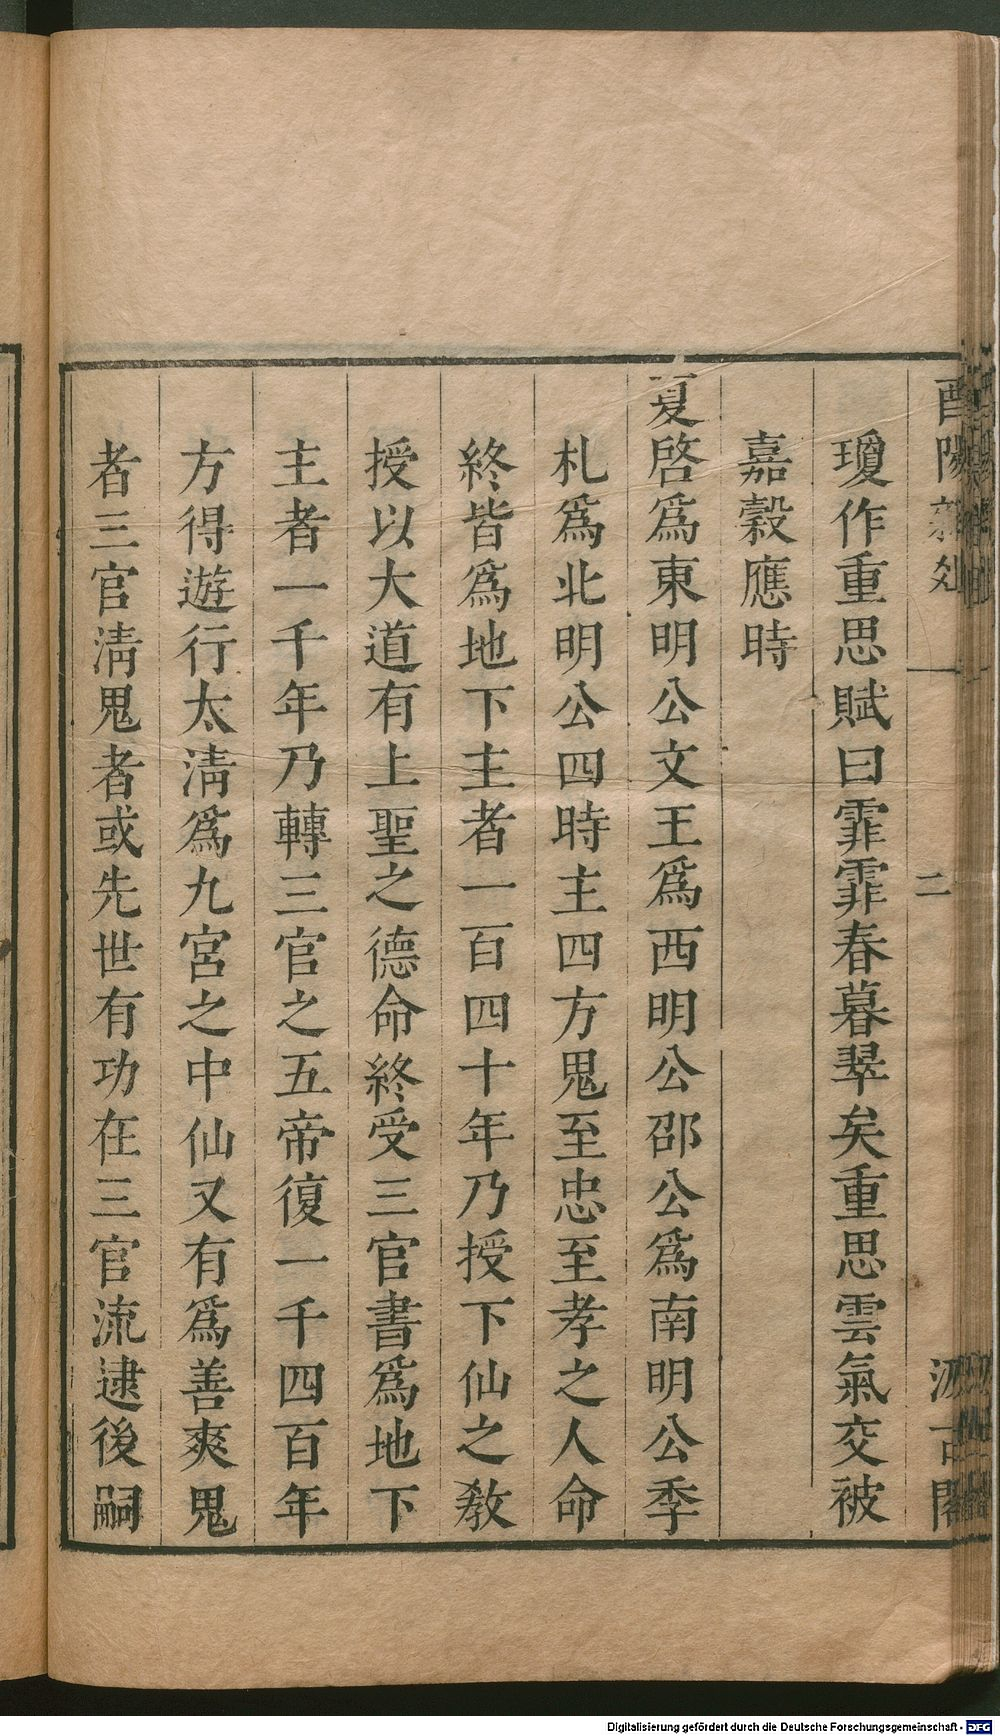 酉陽雜俎
二
汲古閣
瓊作重思賦曰霏霏春暮翠矣重思雲氣交被
嘉穀應時
夏啓爲東明公文王爲西明公邵公爲南明公季
札爲北明公四時主四方鬼至忠至孝之人命
終皆爲地下主者一百四十年乃授下仙之教
授以大道有上聖之德命終受三官書爲地下
主者一千年乃轉三官之五帝復一千四百年
方得遊行太淸爲九宮之中仙又有爲善爽鬼
者三官淸鬼者或先世有功在三官流逮後嗣
Digitalisierung gefördert durch die Deutsche Forschungsgemeinschaft - DFG